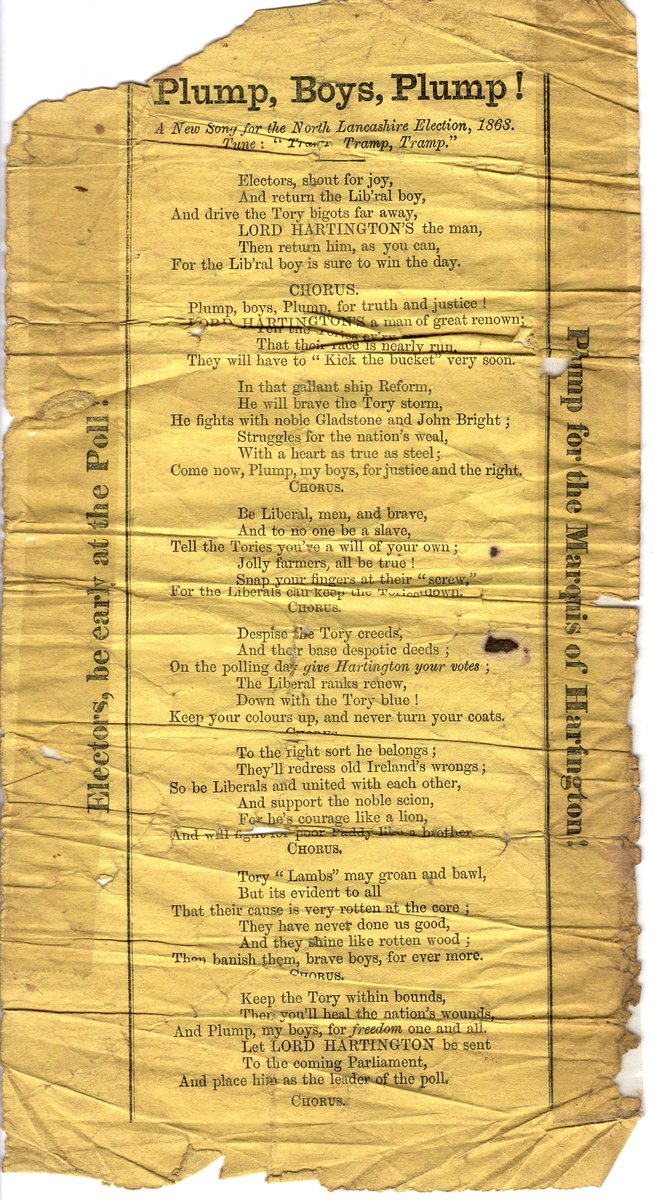 Plump, Boys, Plump!
A New Song for the North Lancashire Election, 1868.
Tune: "Tramp, Tramp, Tramp."
Electors, shout for joy,
And return the Lib'ral boy,
And drive the Tory bigots far away,
LORD HARTINGTON'S the man,
Then return him, as you can,
For the Lib'ral boy is sure to win the day.
CHORUS.
Plump, boys, Plump, for truth and justice!
LORD HARTINGTON'S a man of great renown;
Tell the Tories
That their race is nearly run,
They will have to "Kick the bucket" very soon.
In that gallant ship Reform,
He will brave the Tory storm,
He fights with noble Gladstone and John Bright;
Struggles for the nation's weal,
With a heart as true as steel;
Come now, Plump, my boys, for justice and the right.
CHORUS.
Be Liberal, men, and brave,
And to no one be a slave,
Tell the Tories you're a will of your own;
Jolly farmers, all be true!
Snap your fingers at their "screw,"
For the Liberals can keep the Tories down.
CHORUS.
Despise the Tory creeds,
And their base despotic deeds;
On the polling day give Hartington your votes;
The Liberal ranks renew,
Down with the Tory blue!
Keep your colours up, and never turn your coats.
CHORUS.
To the right sort he belongs;
They'll redress old Ireland's wrongs;
So be Liberals and united with each other,
And support the noble scion,
For he's courage like a lion,
And will fight for poor Paddy like a brother.
CHORUS.
Tory "Lambs" may groan and bawl,
But its evident to all
That their cause is very rotten at the core;
They have never done us good,
And they shine like rotten wood;
Then banish them, brave boys, for ever more.
CHORUS.
Keep the Tory within bounds,
Then you'll heal the nation's wounds,
And Plump, my boys, for freedom one and all.
Let LORD HARTINGTON be sent
To the coming Parliament,
And place him as the leader of the poll.
CHORUS.
Electors, be early at the Poll!
Plump for the Marquis of Hartington!